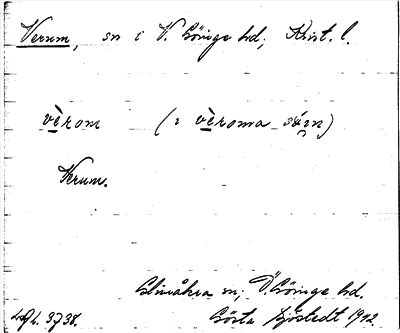 Verum, sn i V. Göinge hd, Krist. l.
vèrom (i vèroma sɷ́ᶇ)
Verum.
Glimåkra sn, Ö. Göinge hd.
Gösta Sjöstedt 1912